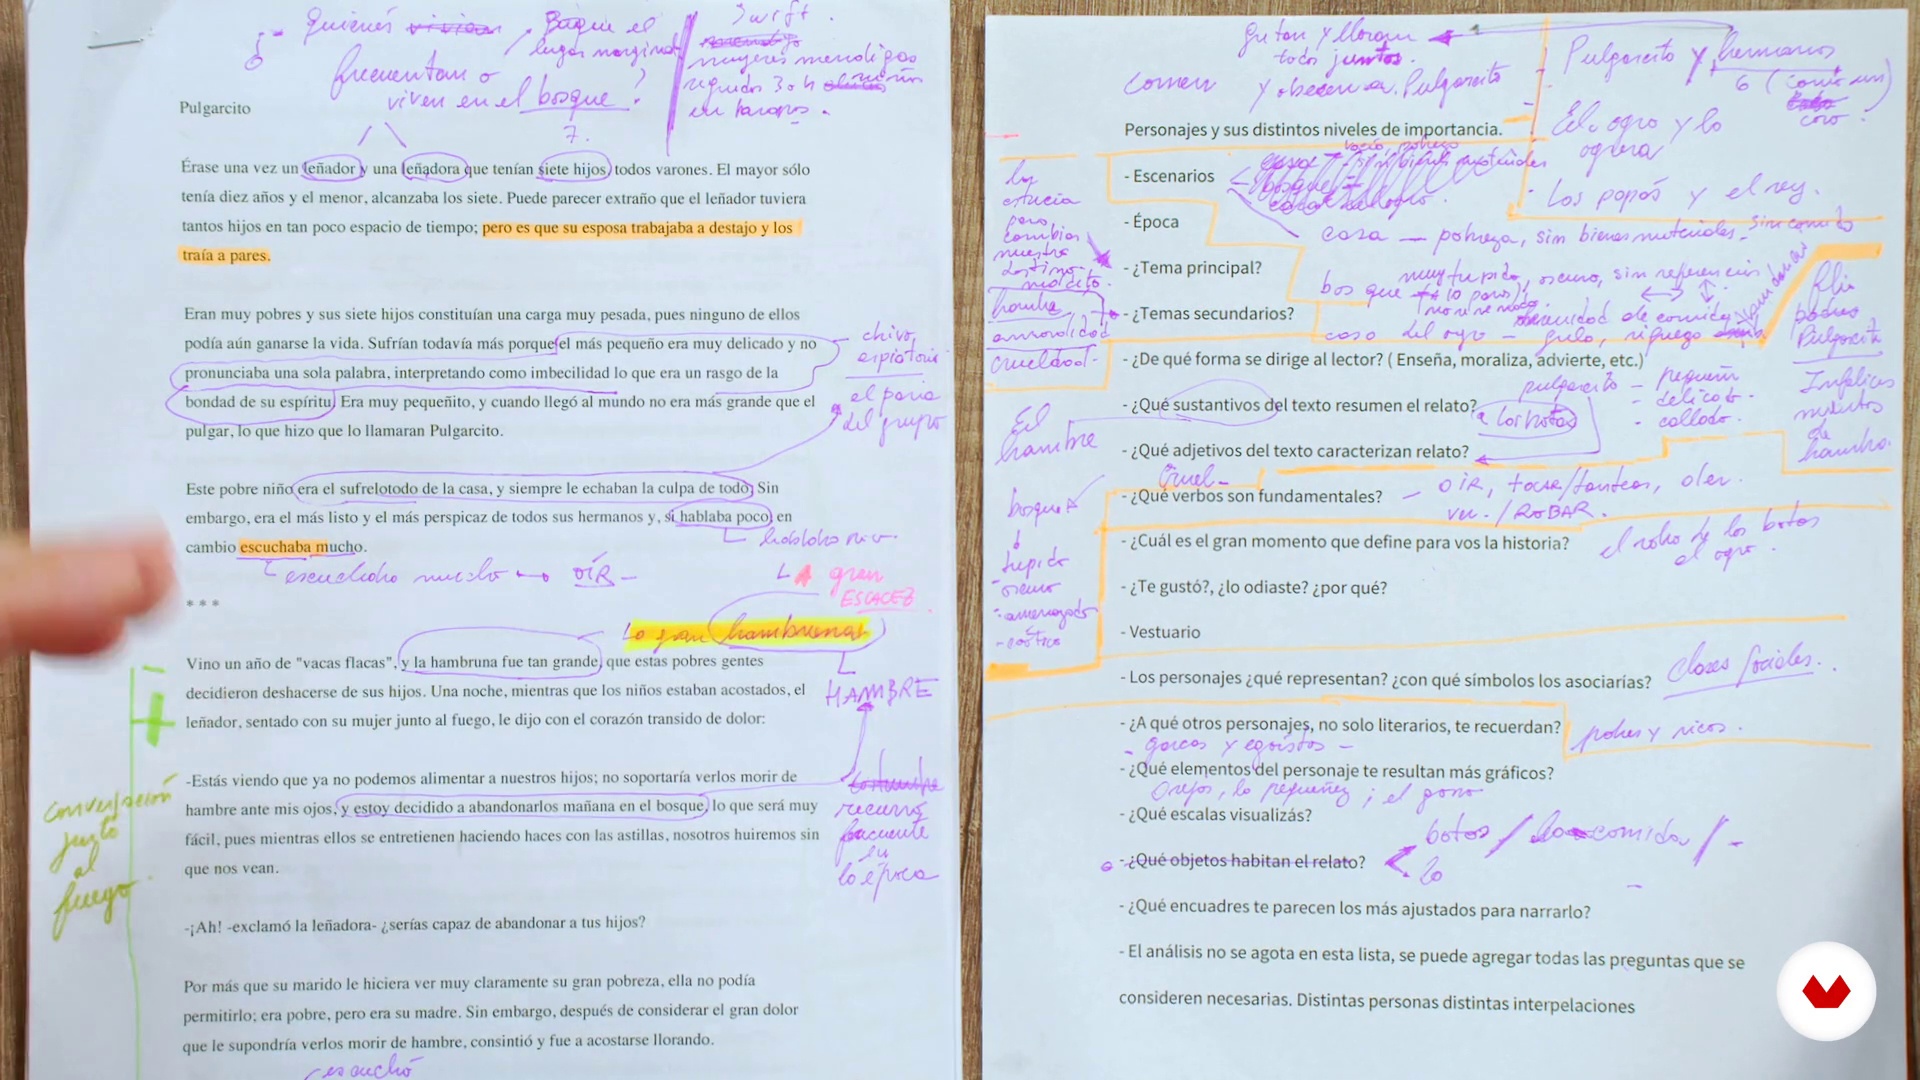 Quienes vivian
frecuentan o
viven en el bosque?
Bosque el
lugar marginal
Swift.
mujeres mendigas
seguidas 3 o 4
en harapos.
7.
Pulgarcito
Érase una vez un leñador y una leñadora que tenían siete hijos, todos varones. El mayor sólo
tenía diez años y el menor, alcanzaba los siete. Puede parecer extraño que el leñador tuviera
tantos hijos en tan poco espacio de tiempo; pero es que su esposa trabajaba a destajo y los
traía a pares.
Eran muy pobres y sus siete hijos constituían una carga muy pesada, pues ninguno de ellos
podía aún ganarse la vida. Sufrían todavía más porque el más pequeño era muy delicado y no
pronunciaba una sola palabra, interpretando como imbecilidad lo que era un rasgo de la
bondad de su espíritu. Era muy pequeñito, y cuando llegó al mundo no era más grande que el
pulgar, lo que hizo que lo llamaran Pulgarcito.
chivo
expiatorio
el paria
del grupo
Este pobre niño era el sufrelotodo de la casa, y siempre le echaban la culpa de todo. Sin
embargo, era el más listo y el más perspicaz de todos sus hermanos y, si hablaba poco, en
cambio escuchaba mucho.
mucho OÍR -
LA gran
ESCACEZ
* * *
La gran hambruna
HAMBRE
Vino un año de "vacas flacas", y la hambruna fue tan grande, que estas pobres gentes
decidieron deshacerse de sus hijos. Una noche, mientras que los niños estaban acostados, el
leñador, sentado con su mujer junto al fuego, le dijo con el corazón transido de dolor:
-Estás viendo que ya no podemos alimentar a nuestros hijos; no soportaría verlos morir de
hambre ante mis ojos, y estoy decidido a abandonarlos mañana en el bosque, lo que será muy
fácil, pues mientras ellos se entretienen haciendo haces con las astillas, nosotros huiremos sin
que nos vean.
conversación
junto
al
fuego
costumbre
recurso
frecuente
en
la época
-¡Ah! -exclamó la leñadora- ¿serías capaz de abandonar a tus hijos?
Por más que su marido le hiciera ver muy claramente su gran pobreza, ella no podía
permitirlo; era pobre, pero era su madre. Sin embargo, después de considerar el gran dolor
que le supondría verlos morir de hambre, consintió y fue a acostarse llorando.
escuchó
Gritan y lloran
todos juntos.
comen y obedecen a Pulgarcito
Pulgarcito y hermanos
6 (como un
coro)
El ogro y la
ogresa
Los papás y el rey.
Personajes y sus distintos niveles de importancia.
- Escenarios
- Época
casa — pobreza, sin bienes materiales - sin comida
- ¿Tema principal?
bosque muy tupido, oscuro, sin referencias
- ¿Temas secundarios?
casa del ogro - gula, riqueza
la
astucia
para
cambiar
nuestro
destino
hambre
crueldad.
- ¿De qué forma se dirige al lector? ( Enseña, moraliza, advierte, etc.)
pulgarcito - pequeño
- delicado.
- callado.
- ¿Qué sustantivos del texto resumen el relato?
las botas
El
hambre
- ¿Qué adjetivos del texto caracterizan relato?
Cruel -
padres
Pulgarcito
de
hambre.
- ¿Qué verbos son fundamentales? - OÍR, tocar/tantear, oler.
ver. / ROBAR.
bosque
tupido
oscuro
- ¿Cuál es el gran momento que define para vos la historia?
el robo de las botas
al ogro.
- ¿Te gustó?, ¿lo odiaste? ¿por qué?
- Vestuario
- Los personajes ¿qué representan? ¿con qué símbolos los asociarías?
Clases sociales.
- ¿A qué otros personajes, no solo literarios, te recuerdan?
pobres y ricos.
y egoístas -
- ¿Qué elementos del personaje te resultan más gráficos?
Orejas, lo pequeñez; el gorro
- ¿Qué escalas visualizás?
botas / la comida / -
- ¿Qué objetos habitan el relato?
- ¿Qué encuadres te parecen los más ajustados para narrarlo?
- El análisis no se agota en esta lista, se puede agregar todas las preguntas que se
consideren necesarias. Distintas personas distintas interpelaciones